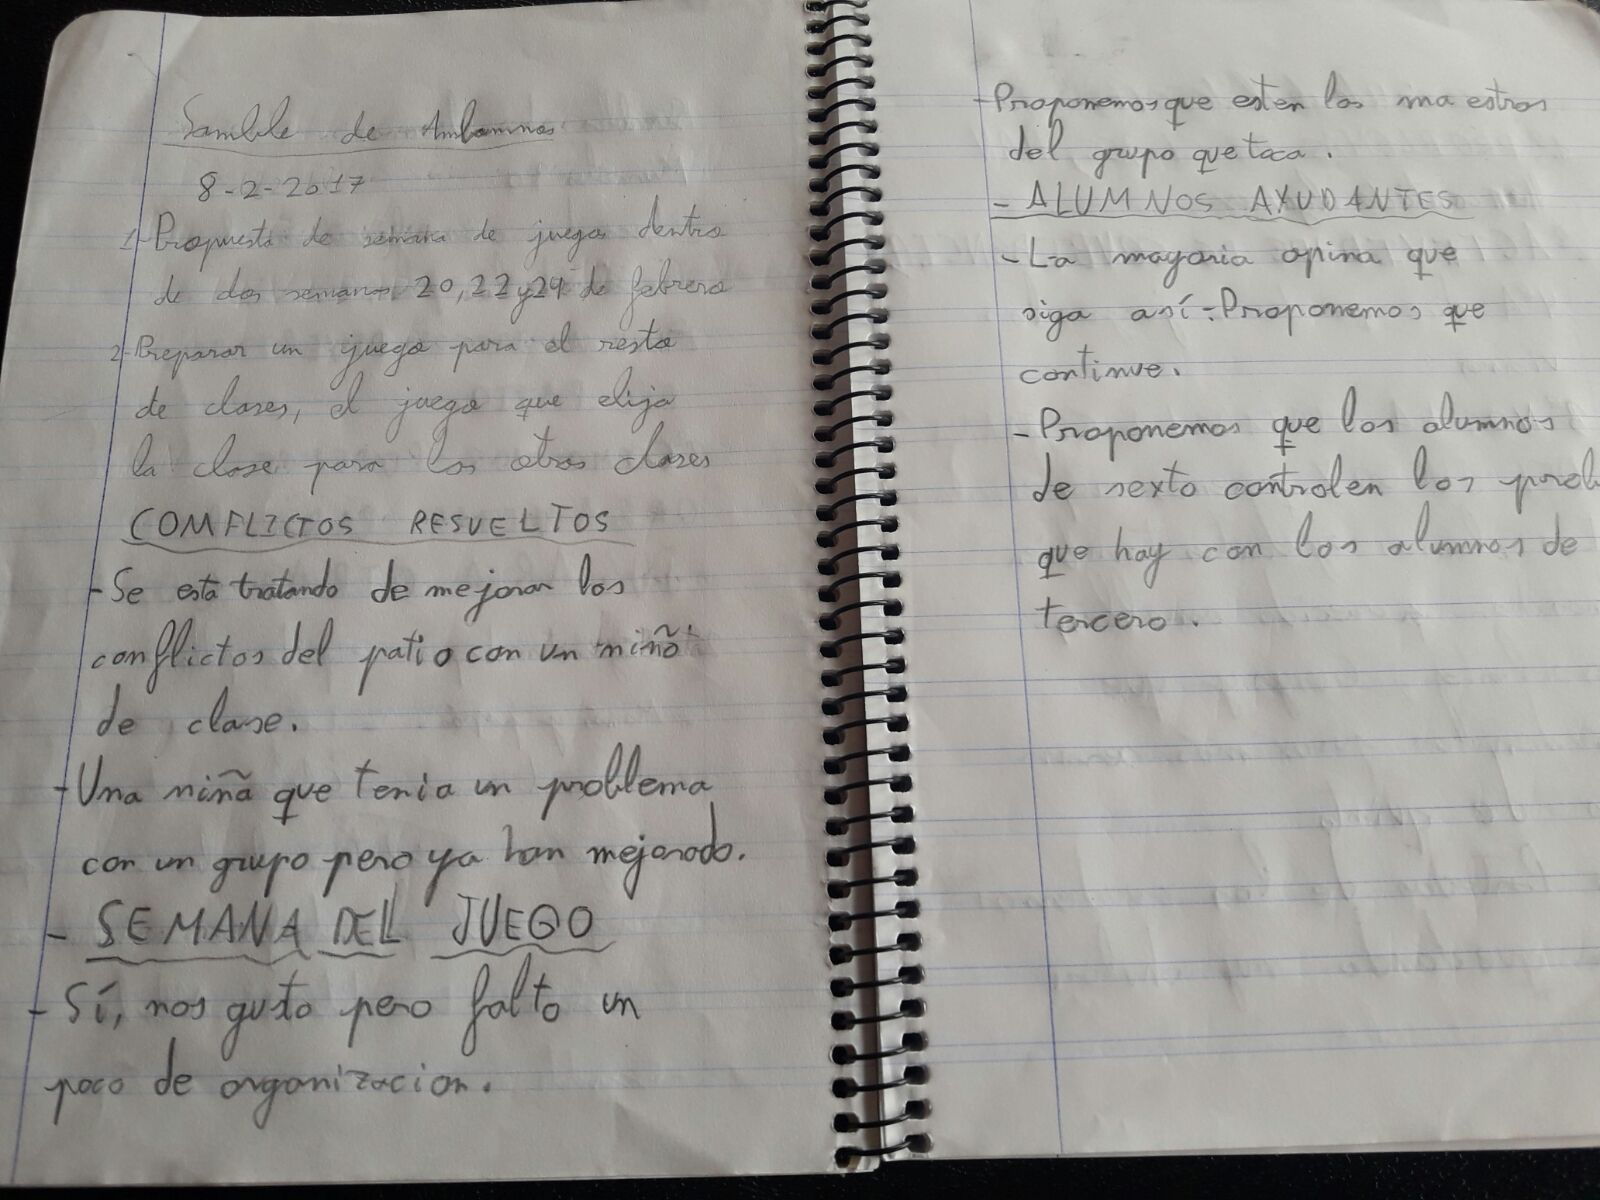 Samble de Anlamnos
8-2-2017
1-Propuesta de semana de juegos dentro
de dos semanas 20,22y24 de febrero
2-Preparar un juego para el resto
de clases, el juego que elija
la clase para las otras clases
COMFLICTOS RESUELTOS
-Se esta tratando de mejorar los
conflictos del patio con un niño
de clase.
-Una niña que tenia un problema
con un grupo pero ya han mejorado.
- SEMANA DEL JUEGO
-Sí, nos gusto pero falto un
poco de organizacion.
-Proponemos que esten los maestros
del grupo que toca.
- ALUMNOS AYUDANTES
-La mayoria opina que
siga así-Proponemos que
continue.
-Proponemos que los alumnos
de sexto controlen los probl
que hay con los alumnos de
tercero.